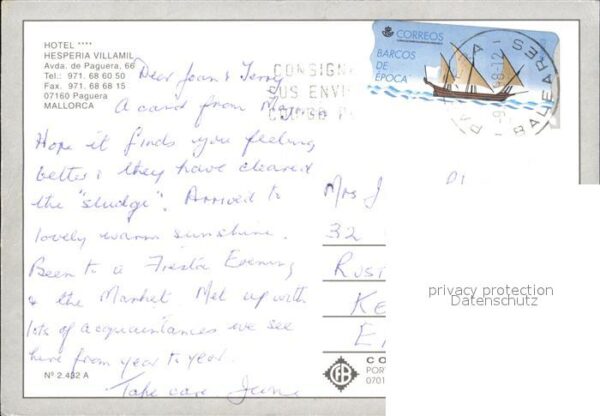 HOTEL ****
HESPERIA VILLAMIL
Avda. de Paguera, 66
Tel.: 971. 68 60 50
Fax. 971. 68 68 15
07160 Paguera
MALLORCA
CORREOS
BARCOS
DE
EPOCA
BALEARES
CONSIGN
SUS ENVI
Dear Joan & Terry
A card from
Hope it finds you feeling
better & they have cleared
the "sludge". Arrived to
lovely warm sunshine.
Been to a Fiesta Evening
& the Market. Met up with
lots of acquaintances we see
here from year to year.
Take care June
Mrs J
32
RUST
KE
E
privacy protection
Datenschutz
CO
POR
0701
Nº 2.432 A